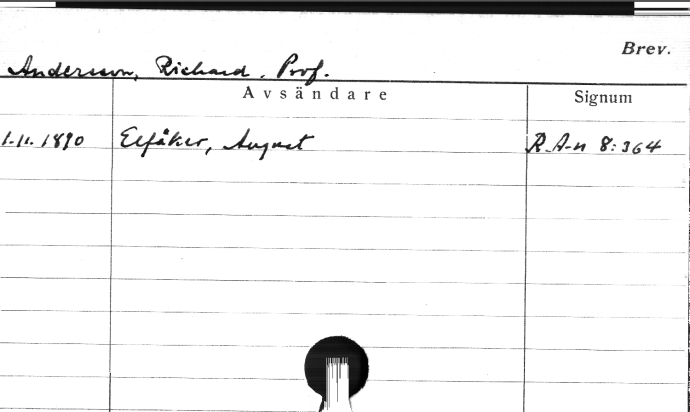 Brev.
Andersson, Richard. Prof.
Avsändare Signum
1.11.1890 Elfåker, August R.A-n 8:364